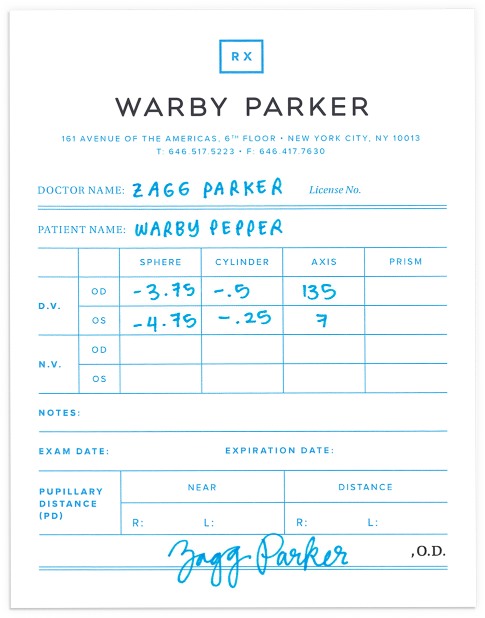 RX
WARBY PARKER
161 AVENUE OF THE AMERICAS, 6TH FLOOR • NEW YORK CITY, NY 10013
T: 646.517.5223 • F: 646.417.7630
DOCTOR NAME: ZAGG PARKER License No.
PATIENT NAME: WARBY PEPPER
SPHERE CYLINDER AXIS PRISM
D.V.
OD -3.75 -.5 135
OS -4.75 -.25 7
N.V.
OD
OS
NOTES:
EXAM DATE: EXPIRATION DATE:
PUPILLARY DISTANCE (PD)
NEAR DISTANCE
R: L: R: L:
Zagg Parker , O.D.